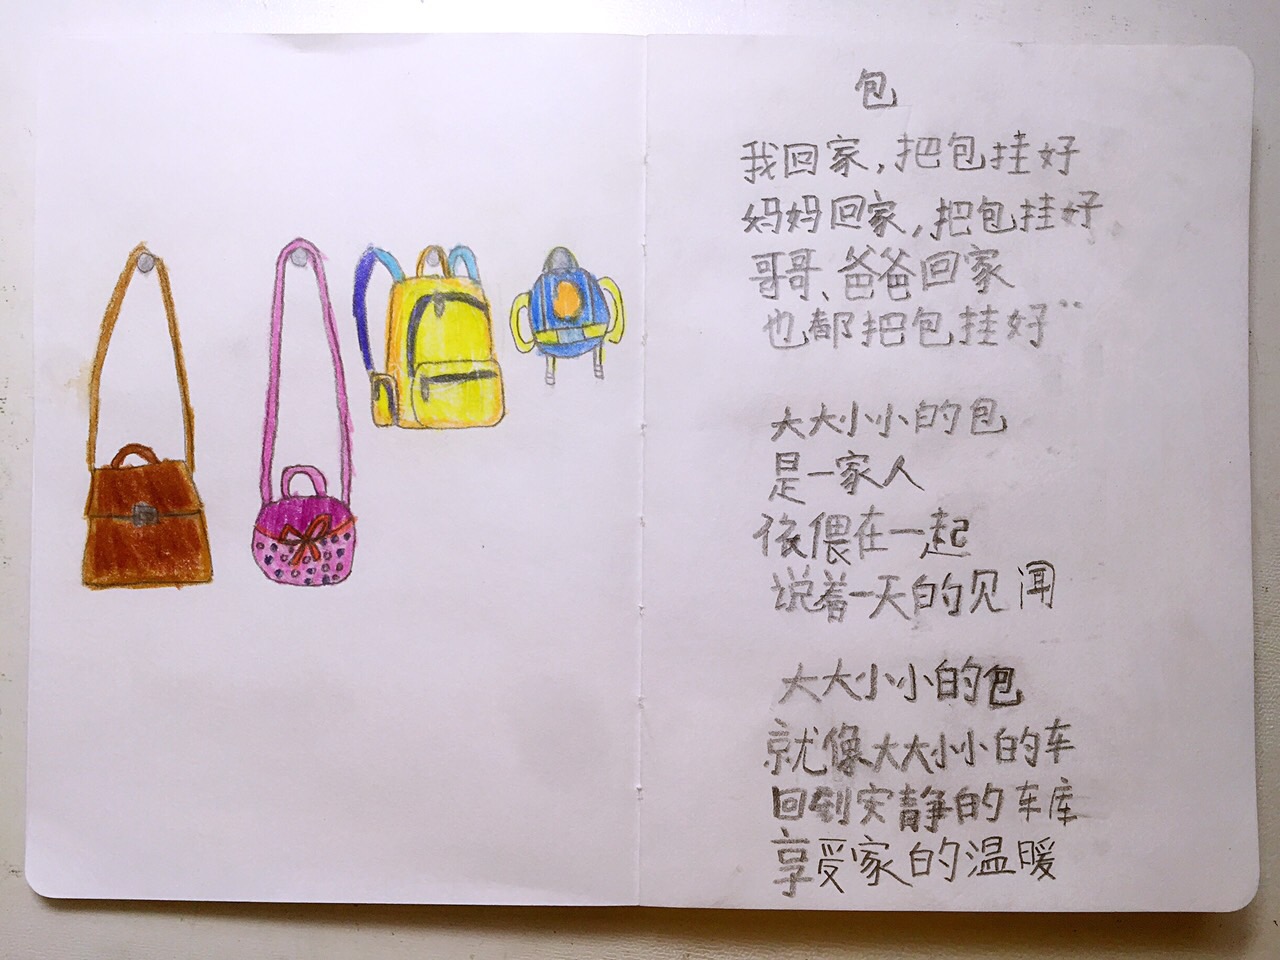 包
我回家，把包挂好
妈妈回家，把包挂好
哥哥、爸爸回家
也都把包挂好
大大小小的包
是一家人
依偎在一起
说着一天的见闻
大大小小的包
就像大大小小的车
回到安静的车库
享受家的温暖